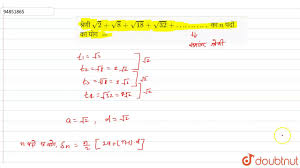 94851865
श्रेणी √2 + √8 + √18 + √32 + ............ का n पदों
का योग
t₁ = √2
t₂ = √8 = 2√2
t₃ = √18 = 3√2
t₄ = √32 = 4√2
√2
√2
√2
a = √2, d = √2
Sn = n/2 [2a + (n-1)d]
doubtnut